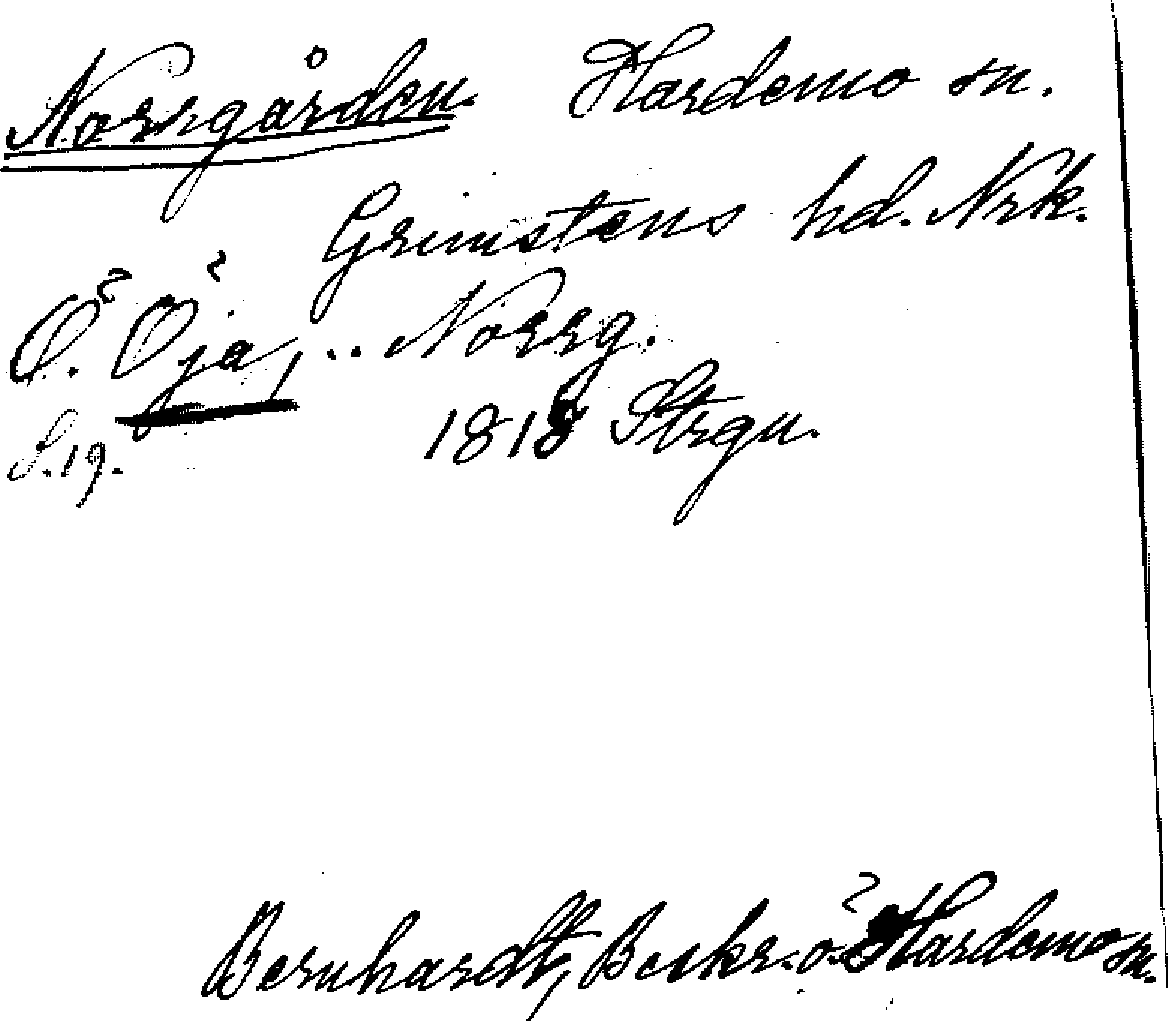 Norrgården. Hardemo sn.
Grimstens hd. Nrk.
Ö. Öja, .. Norrg.
S.19. 1818 Strgn.
Bernhardt, Beskr. ö. Hardemo sn.